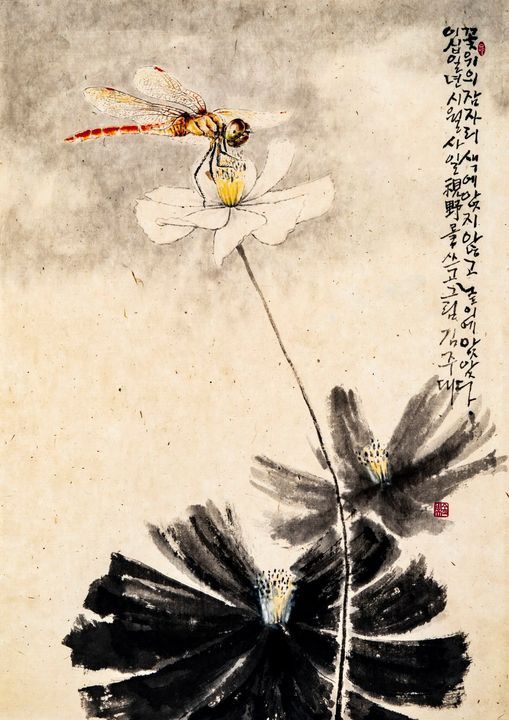 꽃 위의 잠자리 색에 앉지 않고 높이에 앉았다
이십일년 시월 사일 視野를 쓰고 그림 김주대